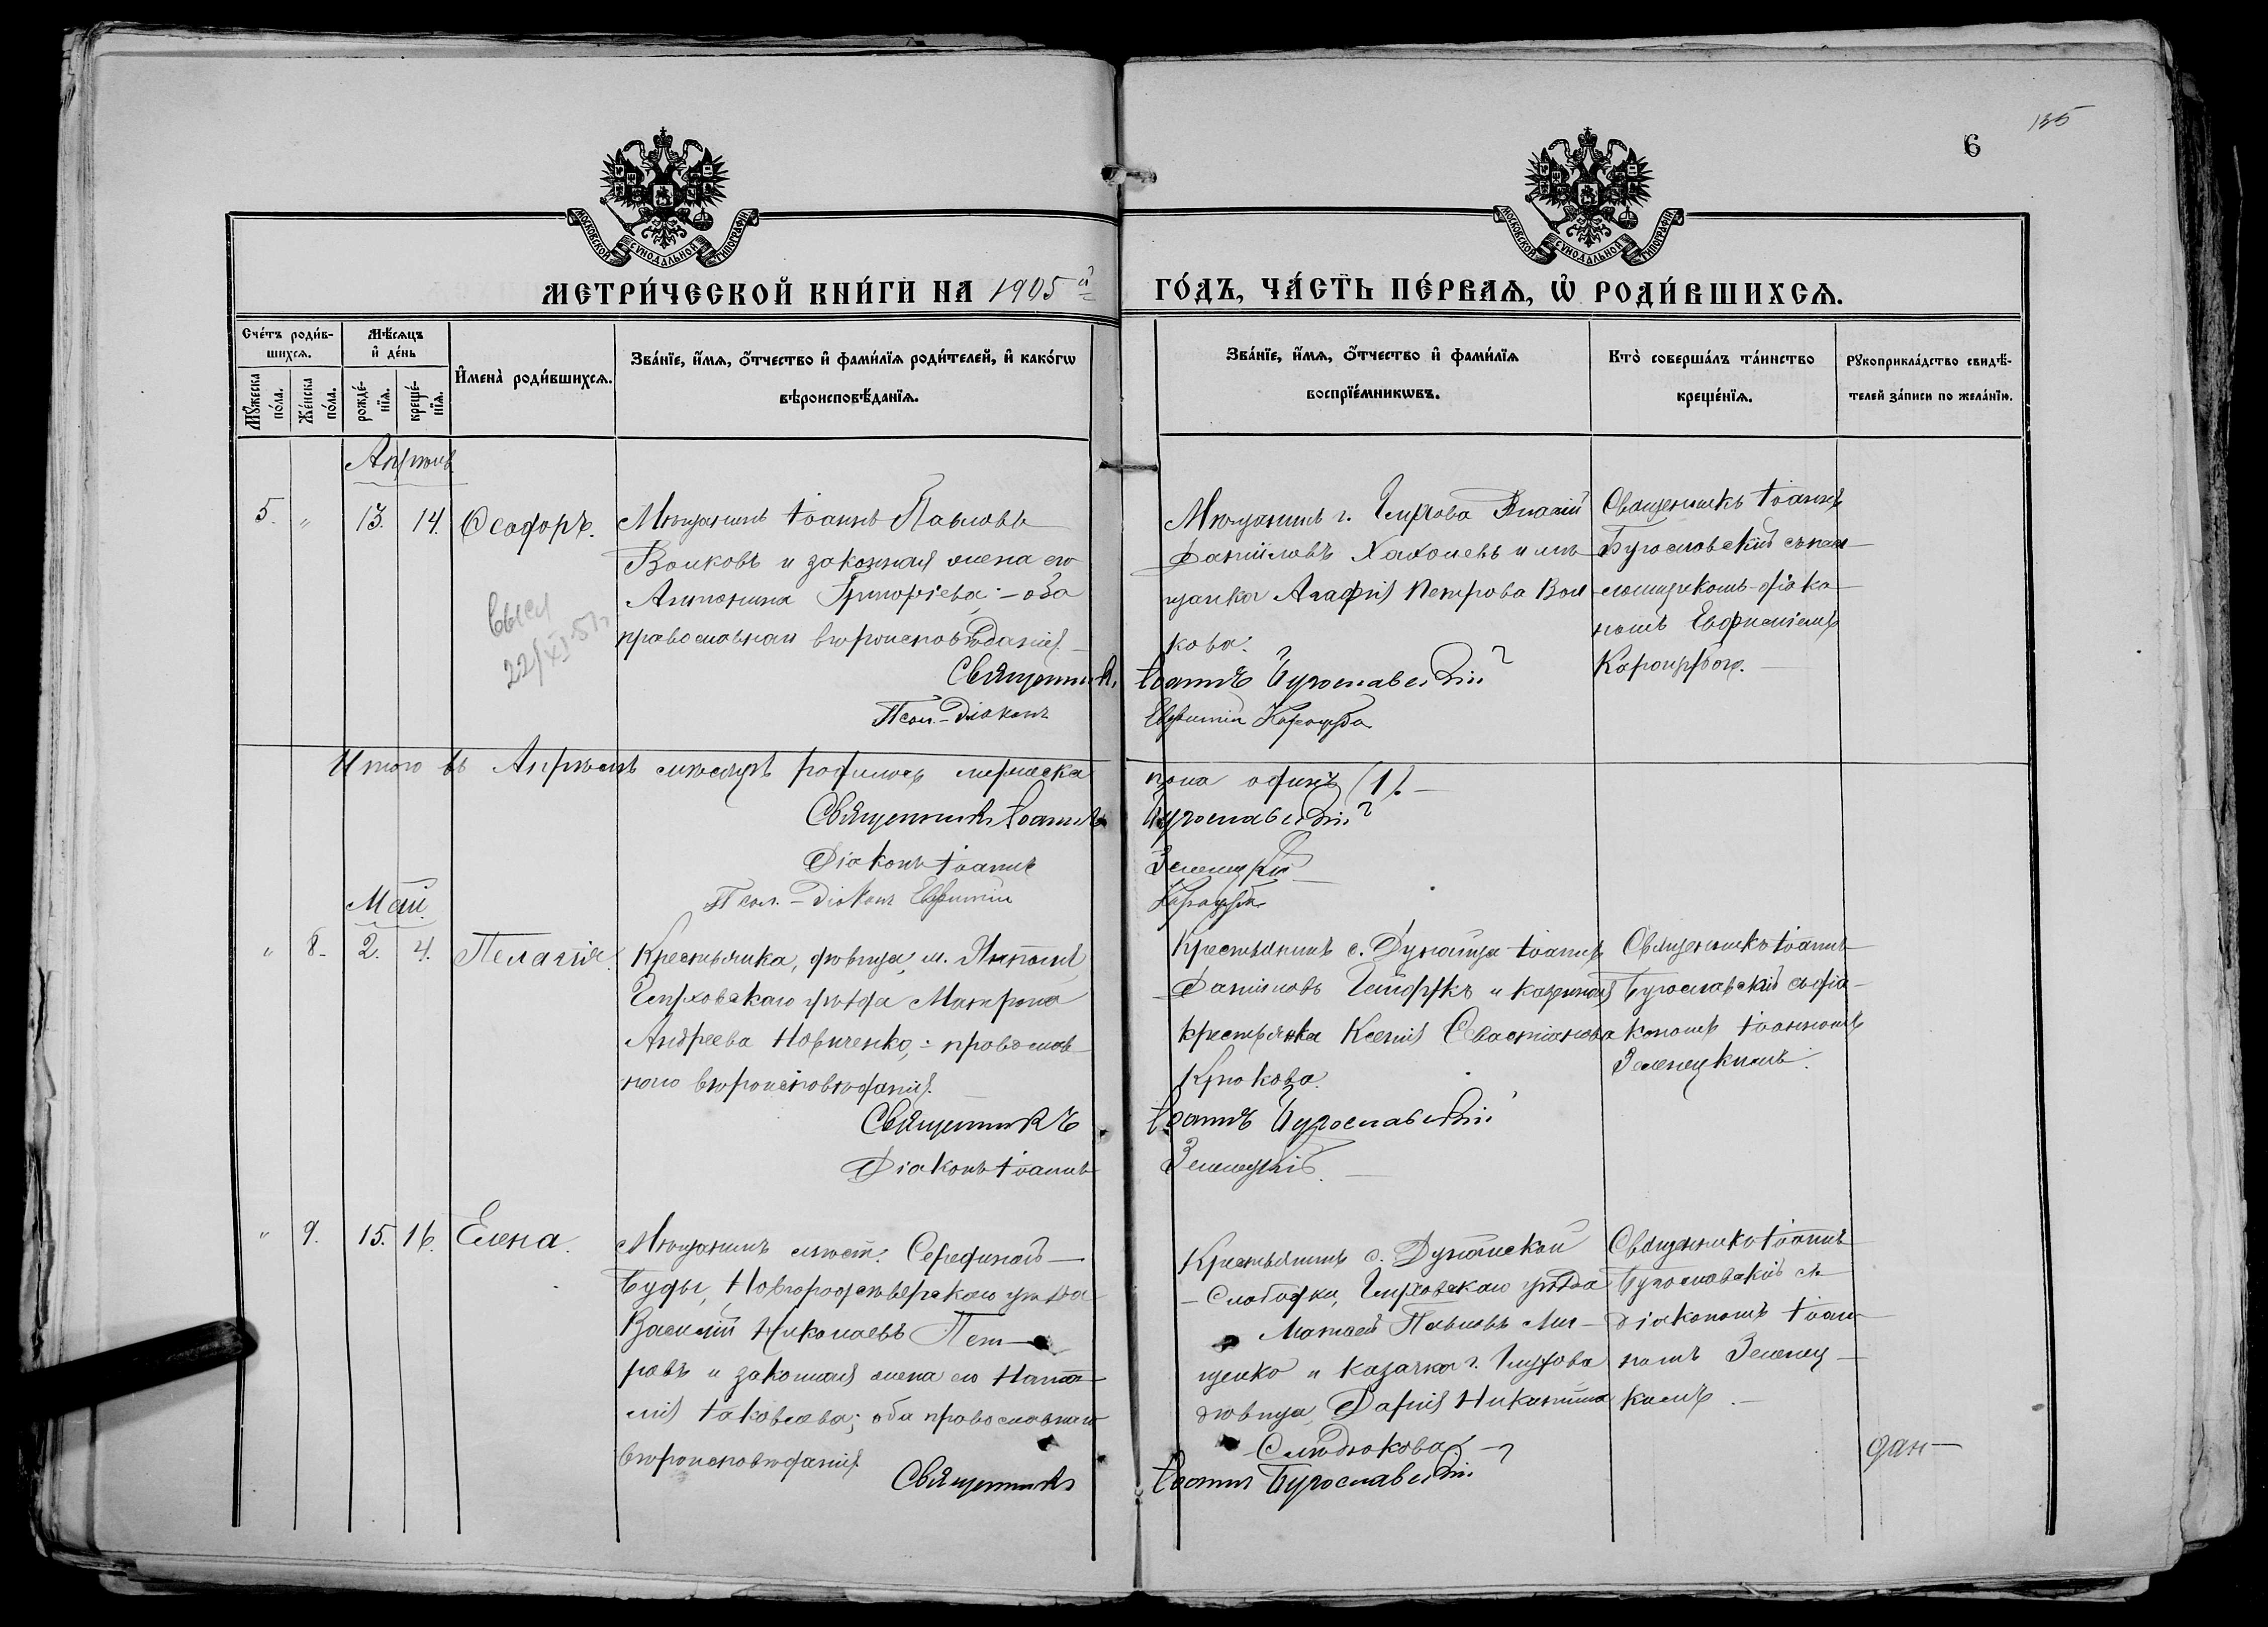 135
6
МОСКОВСКОЙ СѴНОДАЛЬНОЙ ТИПОГРАФІИ
МОСКОВСКОЙ СѴНОДАЛЬНОЙ ТИПОГРАФІИ
МЕТРИ́ЧЕСКОЙ КНИ́ГИ НА 1905 й
ГО́ДЪ, ЧА́СТЬ ПЕ́РВАѦ, Ѡ҆ РОДИ́ВШИХСѦ.
Сче́тъ роди́в-
шихсѧ.
Мѣ́сѧцъ
и҆ де́нь
Мꙋ́жеска
по́ла.
Же́нска
по́ла.
рожде́-
нїѧ.
креще́-
нїѧ.
И҆мена̀ роди́вшихсѧ.
Зва́нїе, и҆́мѧ, ѻ҆́тчество и҆ фами́лїѧ роди́телей, и҆ како́гѡ
вѣроисповѣ́данїѧ.
Зва́нїе, и҆́мѧ, ѻ҆́тчество и҆ фами́лїѧ
воспрїе́мникѡвъ.
Кто̀ соверша́лъ та́инство
креще́нїѧ.
Рꙋкоприкла́дство свидѣ́-
телей за́писи по жела́нїю.
Апрѣль
5. " 13. 14. Ѳеодоръ.
Мѣщанинъ Іоаннъ Павловъ
Волковъ и законная жена его
Антонина Григорієва; – оба
православнаго вѣроисповѣданія.
Священникъ
Псал.-Діаконъ
22/XI-51
Мѣщанинъ г. Глухова
Даніиловъ Хахолевъ и мѣ-
щанка Агафія Петрова Вол
кова.
Іоаннъ Бугославскій
Евфимій Корощуба
Священникъ Іоаннъ
Бугославскій съ пса-
ломщикомъ-діако
номъ Евфиміемъ
Итого въ Апрѣлѣ мѣсяцѣ родилось мужеска
пола одинъ (1).
Священникъ Іоаннъ
Бугославскій
Діаконъ Іоаннъ
Зеленецкій
Псал.-Діаконъ Евфимій
Май.
" 8. 2. 4. Пелагія.
Крестьянка, дѣвица, м. Ямполя,
Глуховскаго уѣзда Матрона
Андреева Новиченко; – православ
наго вѣроисповѣданія.
Священникъ
Діаконъ Іоаннъ
Крестьянинъ с. Дунайца Іоаннъ
Даніиловъ Гайдукъ и казенная
крестьянка Ксенія Севастіанова
Крюкова.
Іоаннъ Бугославскій
Зеленецкій.
Священникъ Іоаннъ
Бугославскій съ діа-
кономъ Іоанномъ
Зеленецкимъ.
" 9. 15. 16. Елена.
Мѣщанинъ мѣст. Серединой-
Буды, Новгородсѣверскаго уѣзда
Василій Николаевъ Пет-
ровъ и законная жена его Ната-
лія Іаковлева; оба православнаго
вѣроисповѣданія.
Священникъ
Крестьянинъ д. Дунайской
– Слободки, Глуховскаго уѣзда
Матѳей Павловъ Ли-
щенко и казачка г. Глухова
дѣвица Дарія
Іоаннъ Бугославскій
Священникъ Іоаннъ
Бугославскій съ
діакономъ Іоан-
номъ Зеленец-
кимъ.